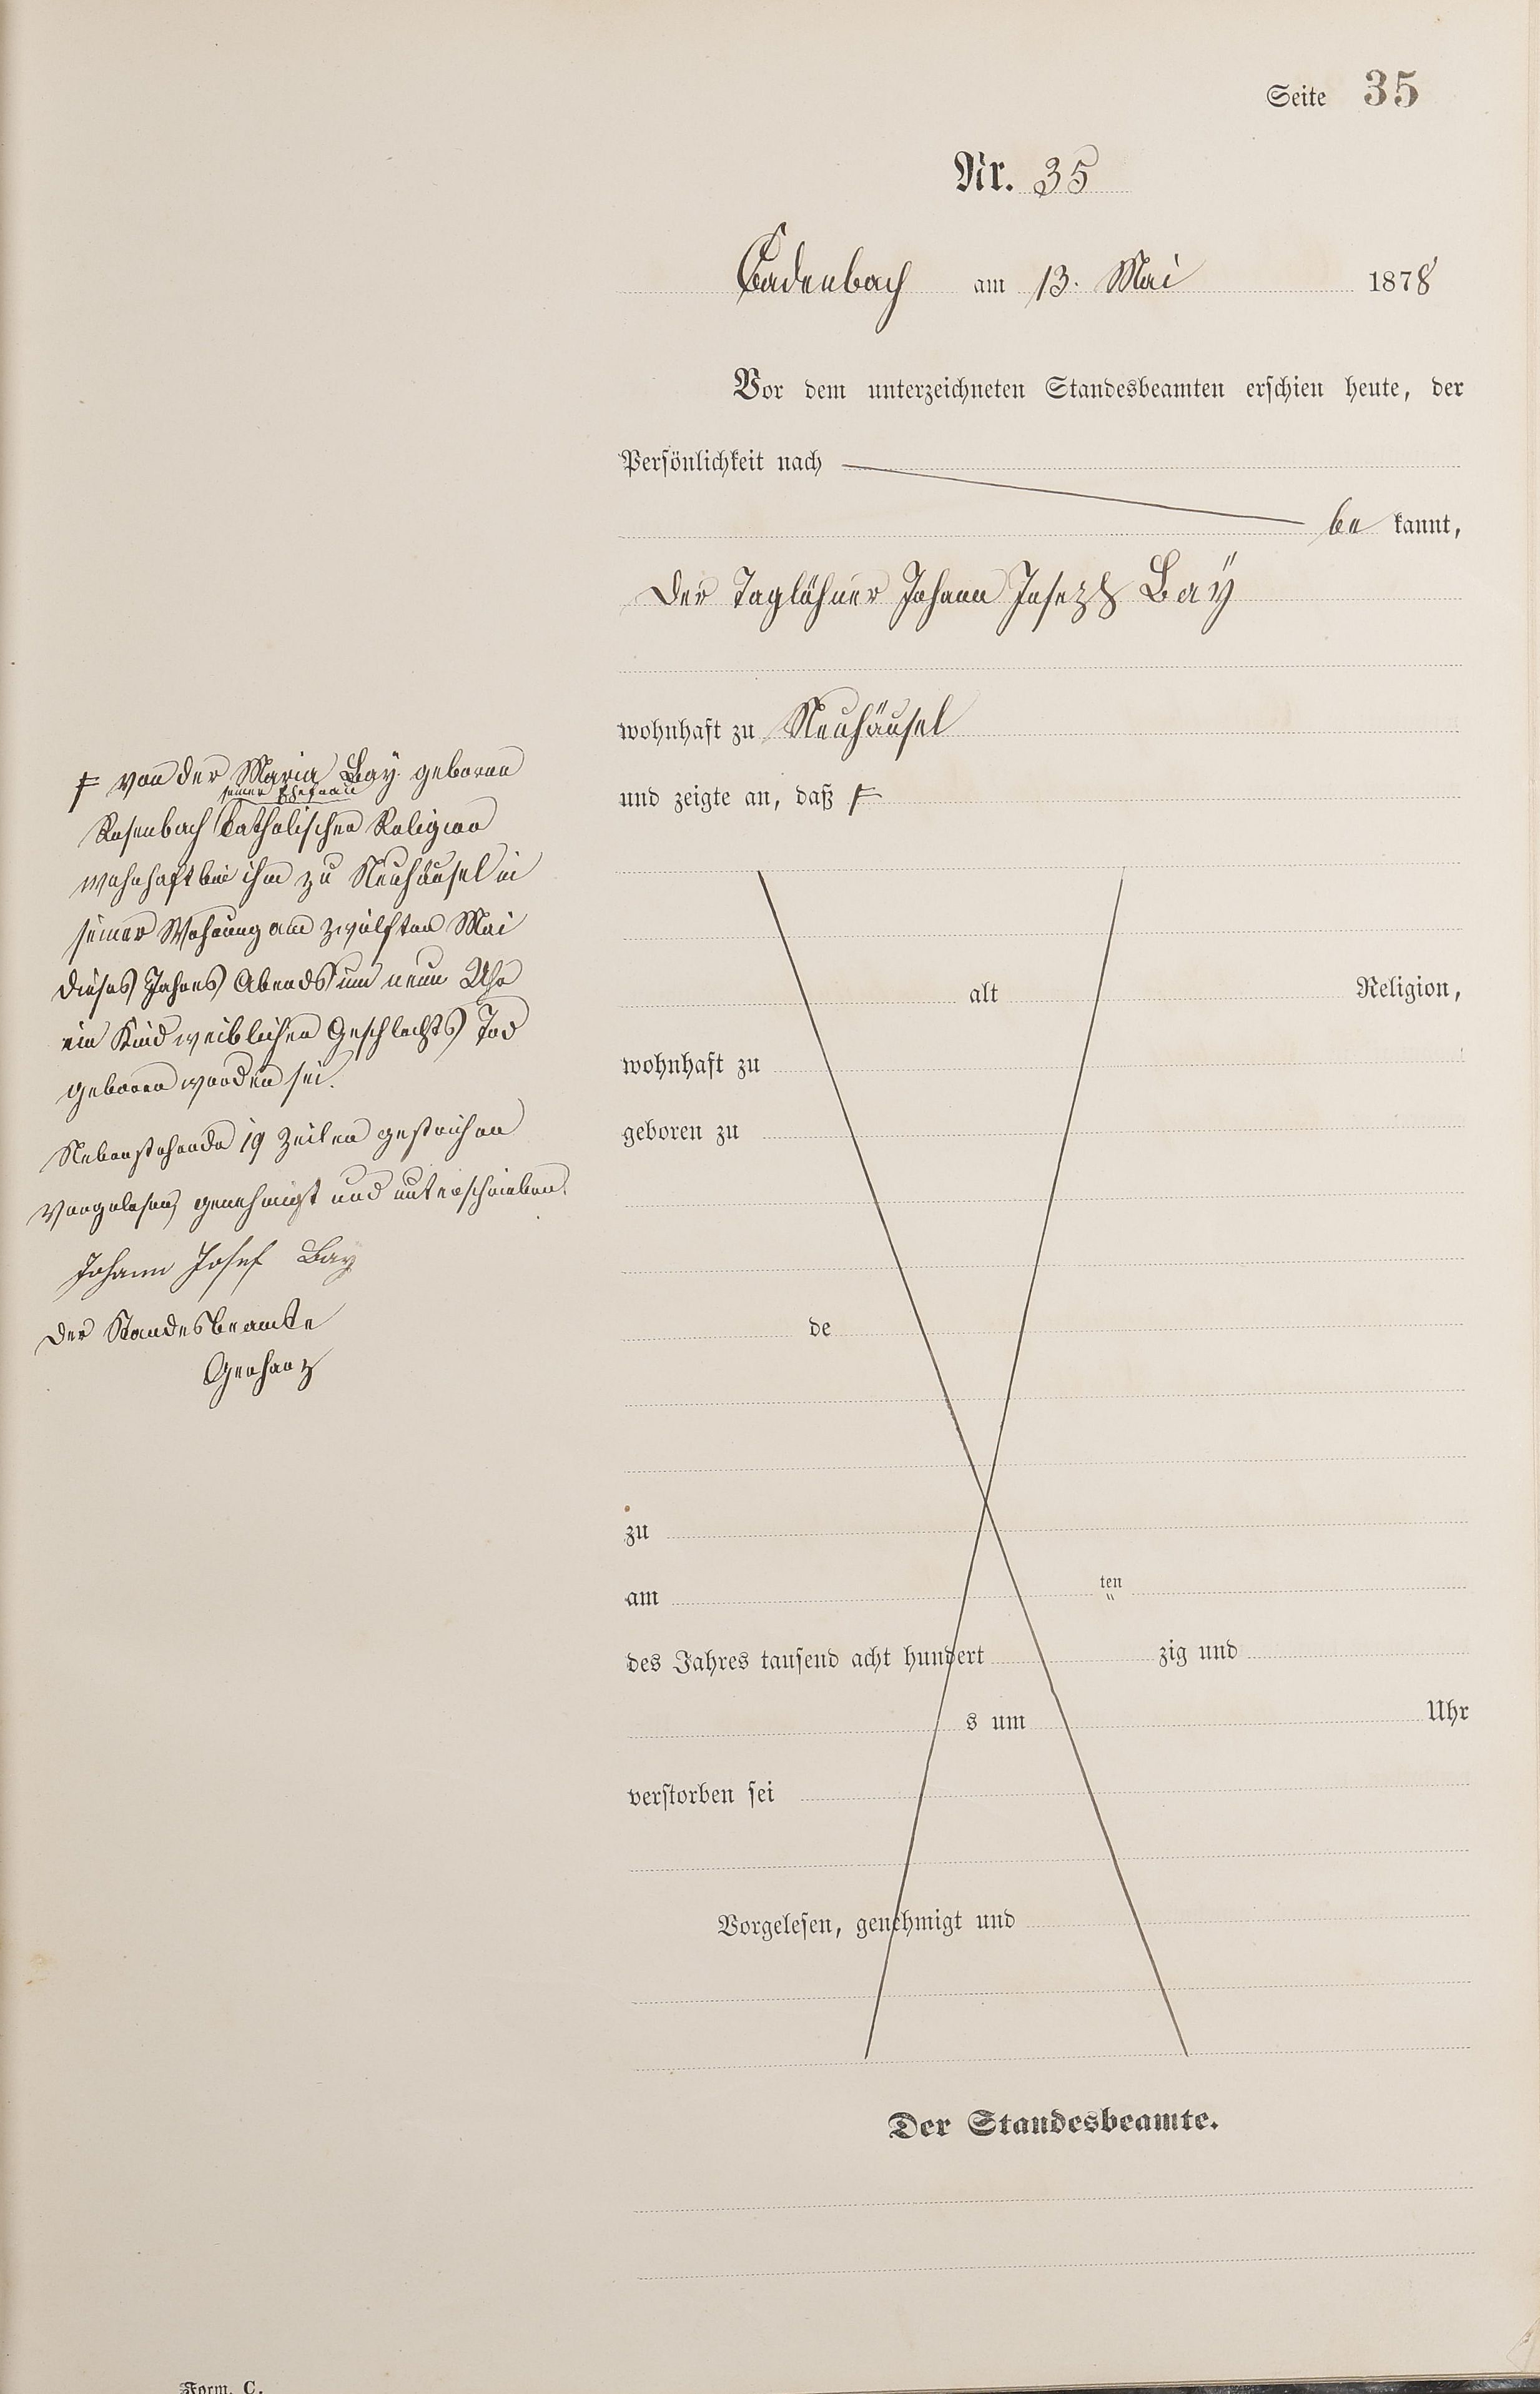 Seite 35
Nr. 35
Cadenbach am 13. Mai 1878
Vor dem unterzeichneten Standesbeamten erschien heute, der
Persönlichkeit nach
be kannt,
Der Taglöhner Johann Joseph Baÿ
wohnhaft zu Neuhäusel
und zeigte an, daß ₣
₣ von der Maria Bay geboren
seiner Ehefrau
Rosenbach Catholischer Religion
wohnhaft bei ihm zu Neuhäusel in
seiner Wohnung am zwölften Mai
dieses Jahres Abends um neun Uhr
ein Kind weiblichen Geschlechts Tod
geboren worden sei.
Nebenstehende 19 Zeilen gestrichen
Vorgelesen, genehmigt und unterschrieben.
Johann Josef Bay
Der Standesbeamte
Gerharz
alt Religion,
wohnhaft zu
geboren zu
de
zu
am ten
des Jahres tausend acht hundert zig und
s um Uhr
verstorben sei
Vorgelesen, genehmigt und
Der Standesbeamte.
Form. C.